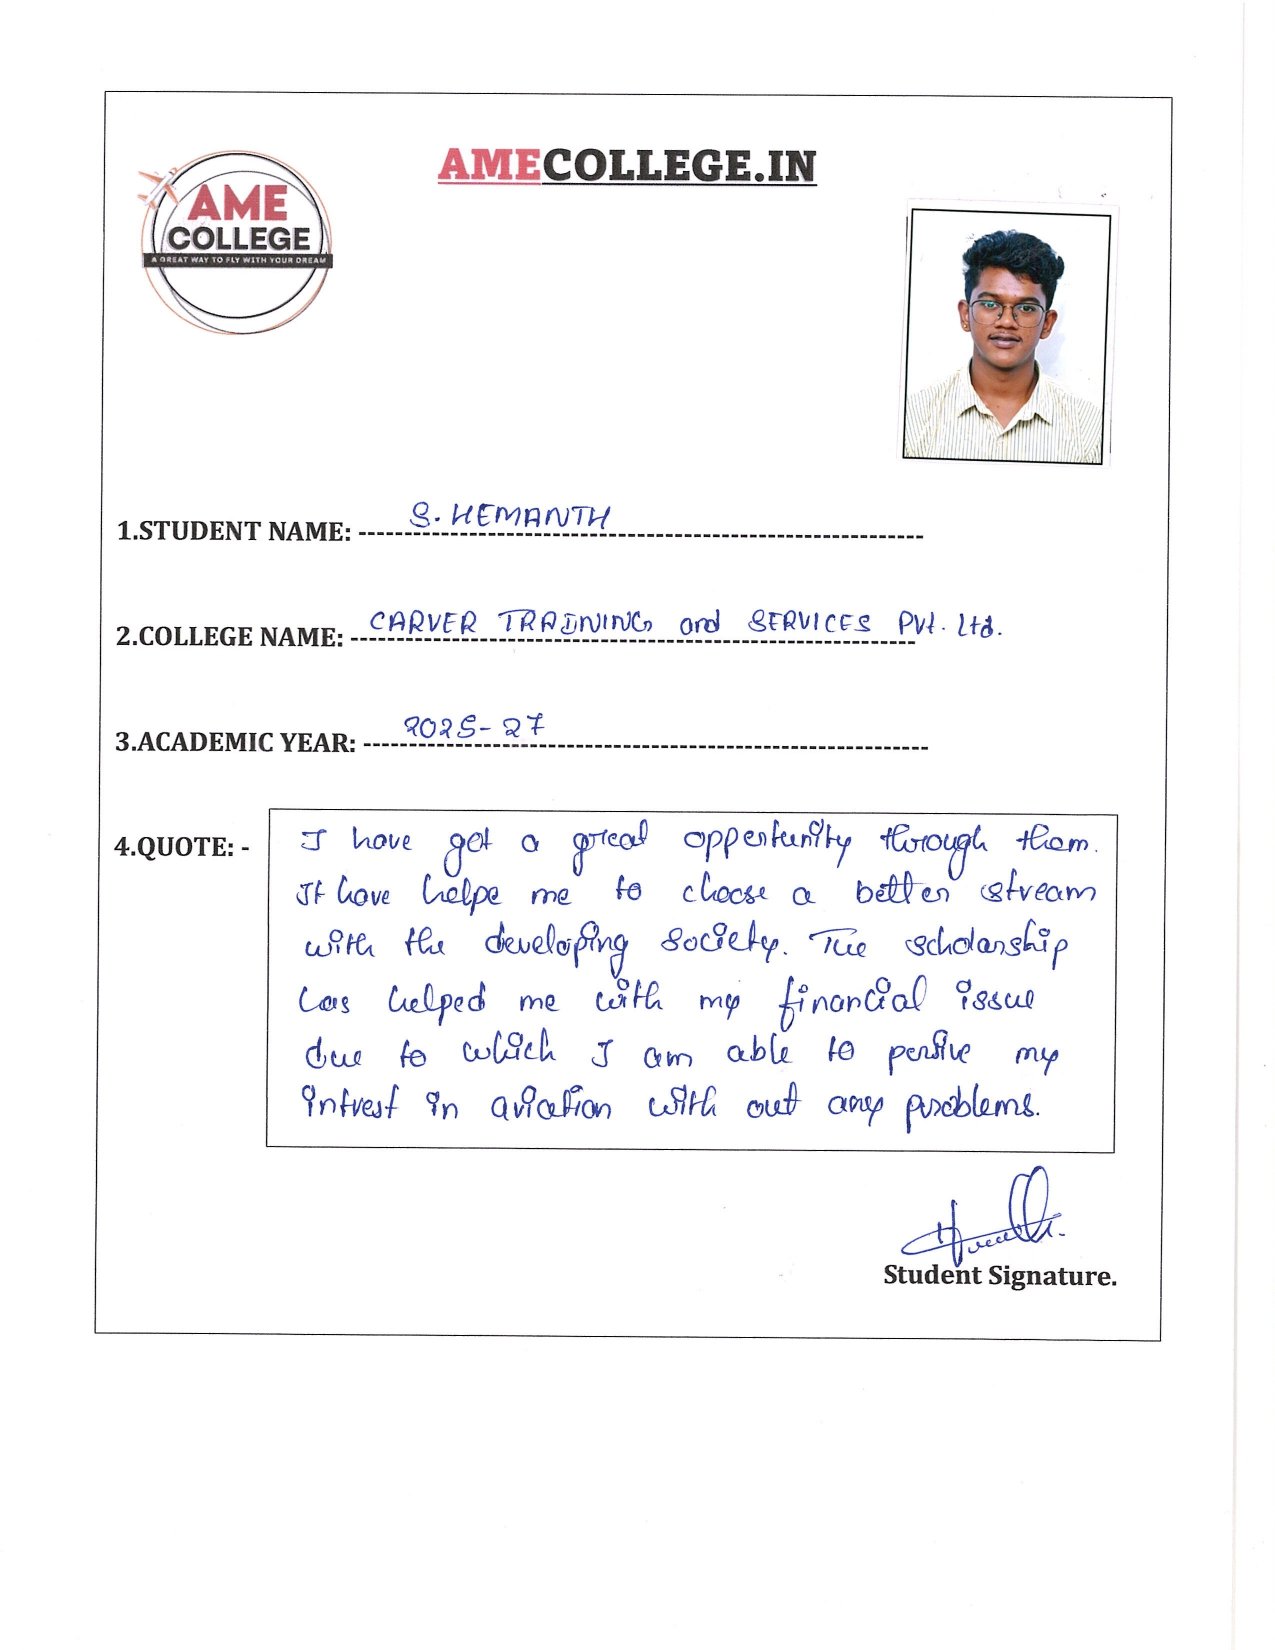 AMECOLLEGE.IN
AME
COLLEGE
A GREAT WAY TO FLY WITH YOUR DREAM
1.STUDENT NAME: S. HEMANTH
2.COLLEGE NAME: CARVER TRAINING and SERVICES Pvt. Ltd.
3.ACADEMIC YEAR: 2025-27
4.QUOTE: - I have get a great oppertunity through them.
It have helpe me to choose a better stream
with the developing society. The scholarship
has helped me with my financial issue
due to which I am able to persive my
intrest in aviation with out any problems.
Student Signature.